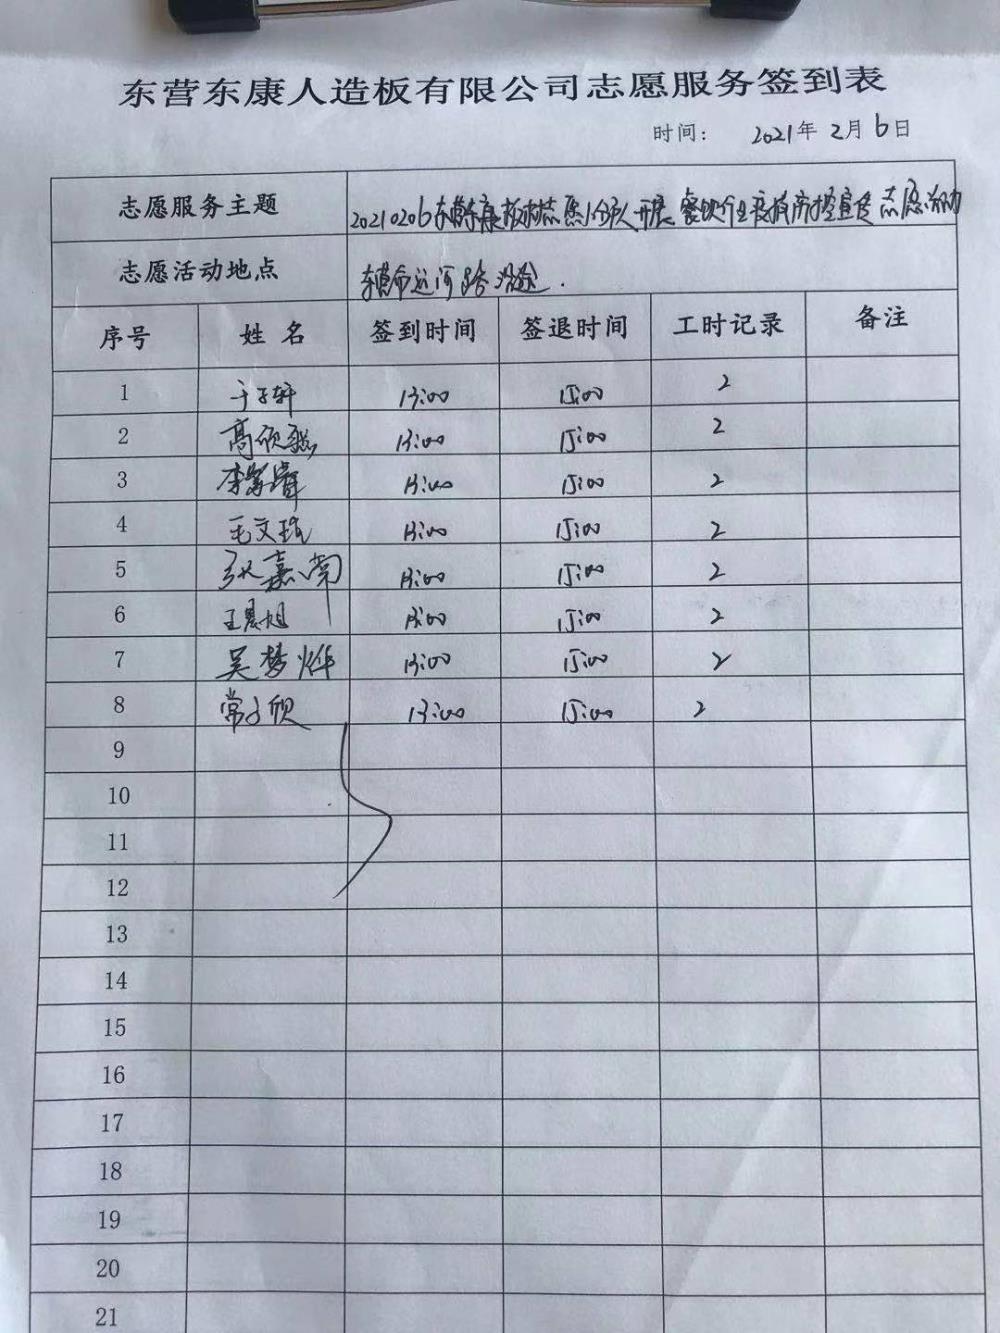 东营东康人造板有限公司志愿服务签到表
时间： 2021年 2月 6日
志愿服务主题 20210206东营东康板材志愿小分队开展餐饮行业疫情防控宣传志愿活动
志愿活动地点 东营市运河路沿途.
序号 姓名 签到时间 签退时间 工时记录 备注
1 于子轩 13:00 15:00 2
2 高欣 13:00 15:00 2
3 李 13:00 15:00 2
4 毛文 13:00 15:00 2
5 张嘉 13:00 15:00 2
6 王晨旭 13:00 15:00 2
7 吴梦烨 13:00 15:00 2
8 常子欣 13:00 15:00 2
9
10
11
12
13
14
15
16
17
18
19
20
21